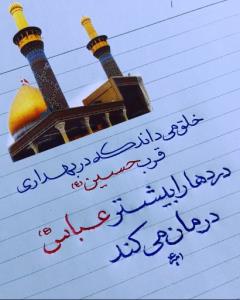 خلق می داند که در بهداری
قرب حسین (ع)
دردها را بیشتر عباس (ع)
درمان می کند